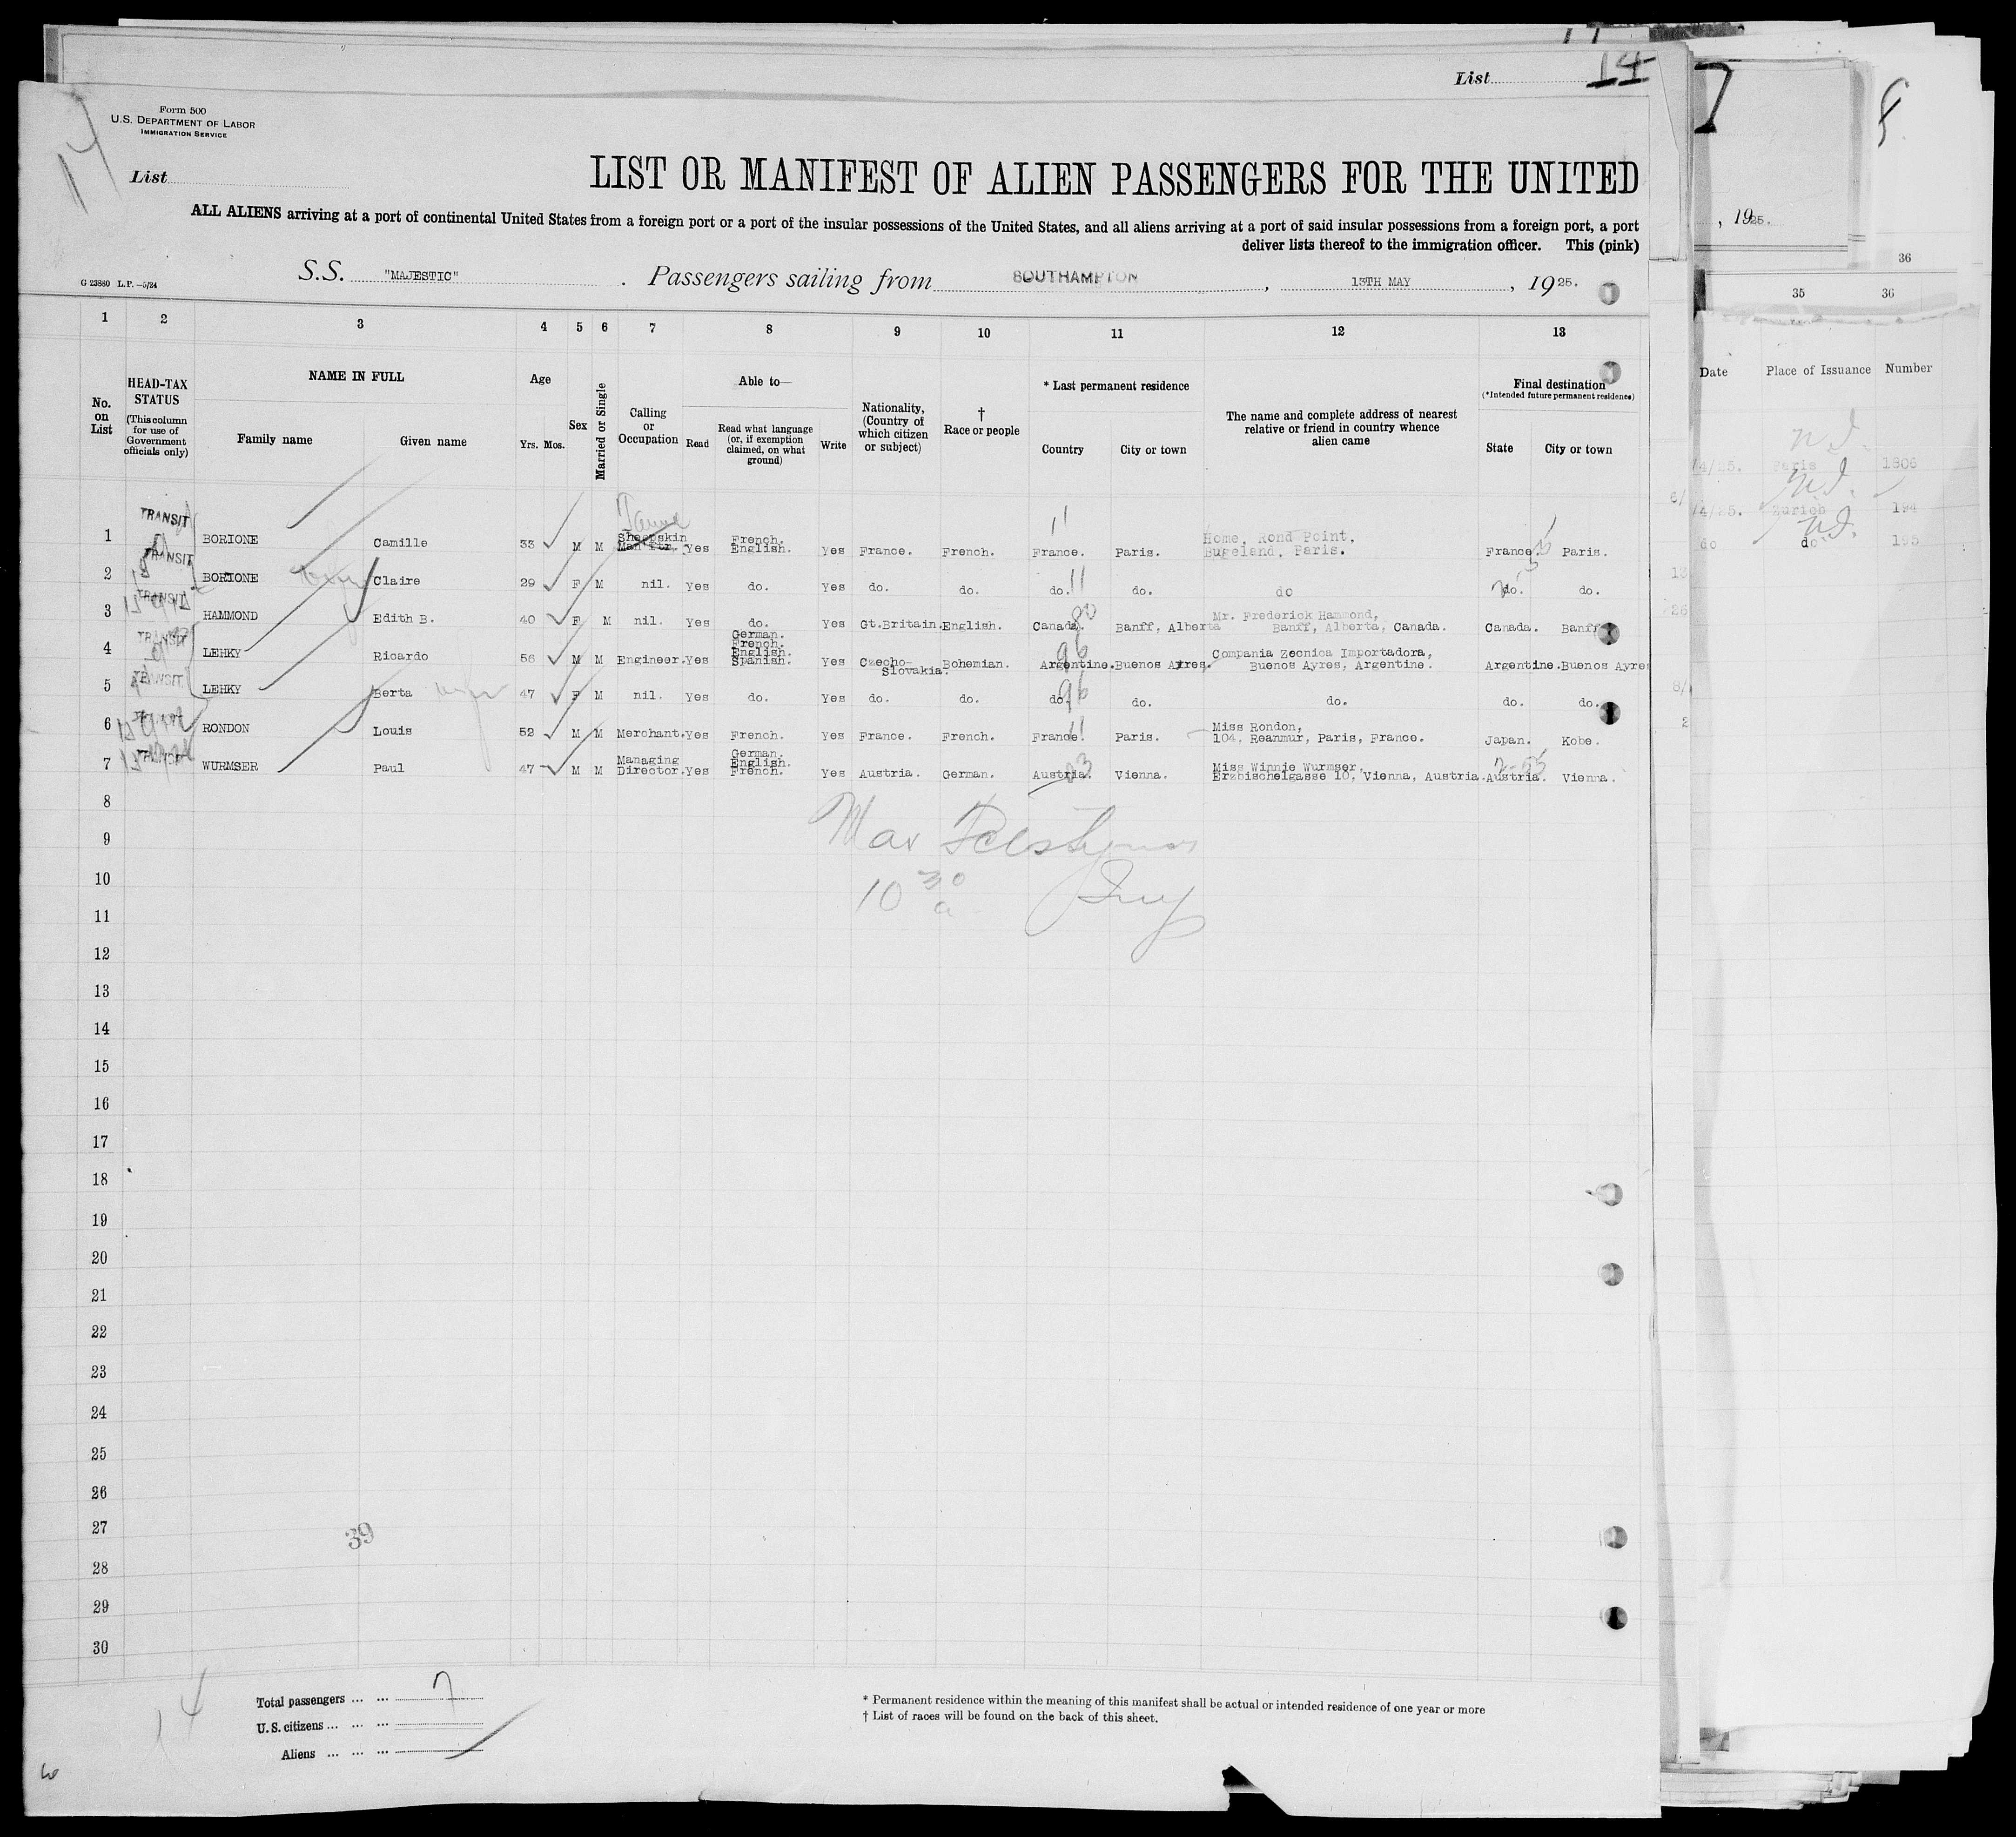 List 14
Form 500
U.S. DEPARTMENT OF LABOR
IMMIGRATION SERVICE
14
List
LIST OR MANIFEST OF ALIEN PASSENGERS FOR THE UNITED
ALL ALIENS arriving at a port of continental United States from a foreign port or a port of the insular possessions of the United States, and all aliens arriving at a port of said insular possessions from a foreign port, a port
deliver lists thereof to the immigration officer. This (pink)
G 23880 L.P.—5/24
S.S. "MAJESTIC" . Passengers sailing from SOUTHAMPTON, 13TH MAY, 1925.
, 1925.
36
1 2 3 4 5 6 7 8 9 10 11 12 13
35 36
No. on List
HEAD-TAX STATUS (This column for use of Government officials only)
NAME IN FULL
Family name Given name
Age
Yrs. Mos.
Sex
Married or Single
Calling or Occupation
Able to—
Read
Read what language (or, if exemption claimed, on what ground)
Write
Nationality, (Country of which citizen or subject)
† Race or people
* Last permanent residence
Country City or town
The name and complete address of nearest relative or friend in country whence alien came
Final destination
(*Intended future permanent residence)
State City or town
Date Place of Issuance Number
/4/25. Paris 1306
/4/25. Zurich 194
do do 195
1 TRANSIT BORIONE Camille 33 M M Sheepskin Man'ftr. Yes French. English. Yes France. French. France. Paris. Home, Rond Point, Bugeland, Paris. France. Paris.
2 TRANSIT BORIONE Claire 29 F M nil. Yes do. Yes do. do. do. do. do do. do.
3 TRANSIT HAMMOND Edith B. 40 F M nil. Yes do. Yes Gt.Britain. English. Canada. Banff, Alberta Mr. Frederick Hammond, Banff, Alberta, Canada. Canada. Banff
4 TRANSIT LEHKY Ricardo 56 M M Engineer. Yes German. French. English. Spanish. Yes Czecho-Slovakia. Bohemian. Argentine. Buenos Ayres. Compania Zecnica Importadora, Buenos Ayres, Argentine. Argentine. Buenos Ayres
5 TRANSIT LEHKY Berta 47 F M nil. Yes do. Yes do. do. do. do. do. do. do.
6 RONDON Louis 52 M M Merchant. Yes French. Yes France. French. France. Paris. Miss Rondon, 104, Reanmur, Paris, France. Japan. Kobe.
7 TRANSIT WURMSER Paul 47 M M Managing Director. Yes German. English. French. Yes Austria. German. Austria. Vienna. Miss Winnie Wurmser, Erzbischelgasse 10, Vienna, Austria. Austria. Vienna.
8
9
10
11
12
13
14
15
16
17
18
19
20
21
22
23
24
25
26
27
28
29
30
10 30 a
39
14
Total passengers ... ... 7
U.S. citizens ... ... ...
Aliens ... ... ...
* Permanent residence within the meaning of this manifest shall be actual or intended residence of one year or more
† List of races will be found on the back of this sheet.